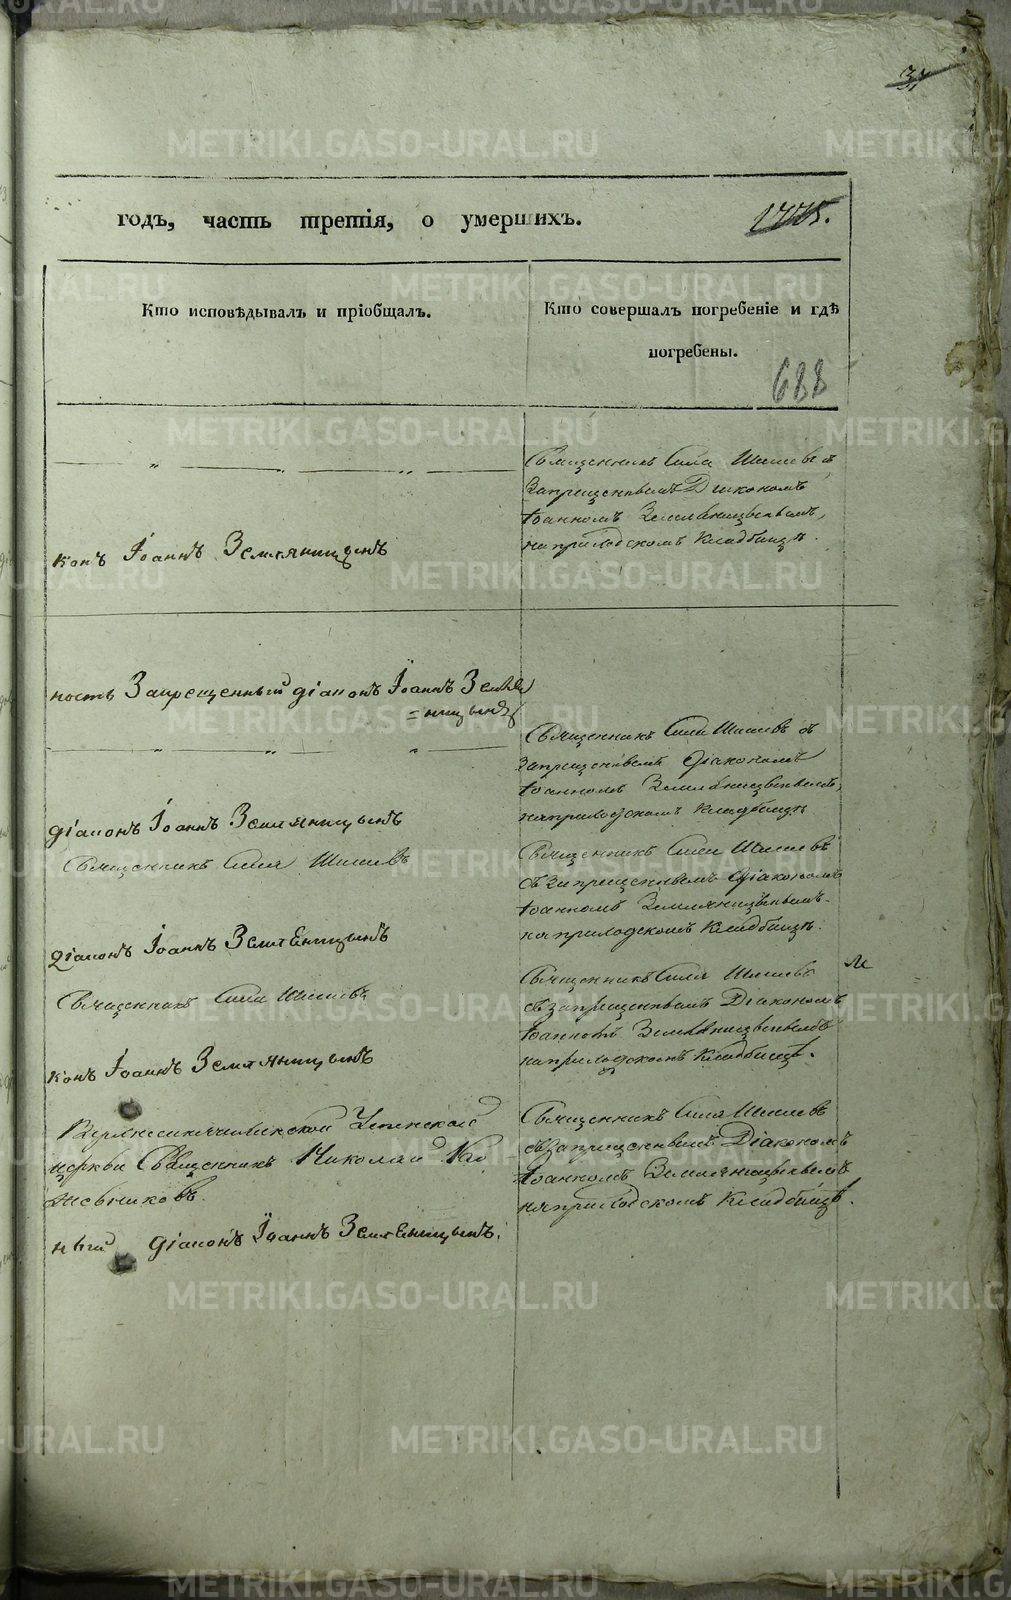 годъ, часть третія, о умершихъ.
1775.
Кто исповѣдывалъ и пріобщалъ.
Кто совершалъ погребеніе и гдѣ
погребены.
688
Священникъ Сила Шишевъ съ
Запрещеннымъ Діакономъ
Іоанномъ Земляницынымъ,
на приходскомъ Кладбищѣ.
конъ Іоаннъ Земляницынъ
ность Запрещенный діаконъ Іоаннъ Земля
=ницынъ
Священникъ Сила Шишевъ съ
запрещеннымъ діакономъ
Іоанномъ Земляницынымъ,
на приходскомъ Кладбищѣ
діаконъ Іоаннъ Земляницынъ
Священникъ Сила Шишевъ
Священникъ Сила Шишевъ
съ запрещеннымъ діакономъ
Іоанномъ Земляницынымъ
на приходскомъ Кладбищѣ.
діаконъ Іоаннъ Земляницынъ
Священникъ Сила Шишевъ
Священникъ Сила Шишевъ
съ запрещеннымъ Діакономъ
Іоанномъ Земляницынымъ
на приходскомъ Кладбищѣ.
конъ Іоаннъ Земляницынъ
церкви Священникъ Николай Ко
жевниковъ.
Священникъ Сила Шишевъ
съ запрещеннымъ Діакономъ
Іоанномъ Земляницынымъ
на приходскомъ Кладбищѣ.
ный діаконъ Іоаннъ Земляницынъ.
METRIKI.GASO-URAL.RU